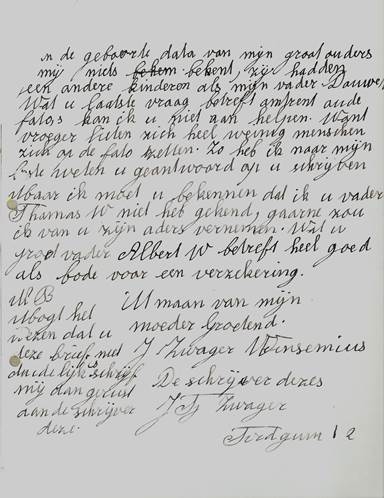 n de geboorte data van mijn grootouders
mij niets bekent, zij hadden
een andere kinderen als mijn vader Douwe.
Wat u laatste vraag betreft omtrent oude
foto's kan ik u niet aan helpen. Want
vroeger lieten zich heel weinig menschen
zich op de foto zetten. Zo heb ik naar mijn
beste weten u geantwoord op u schrijven
Maar ik moet u bekennen dat ik u vader
Thomas W niet heb gekend, gaarne zou
ik van u zijn aders vernemen. Wat u
groot vader Albert W betreft heel goed
als bode voor een verzekering.
N B
Mogt het
wezen dat u
deze brief niet
duidelijk is schrijf
mij dan gerust
aan de schrijver
deze.
U maan van mijn
moeder Groetend.
J Zwager Winsemius
De schrijver dezes
J Zwager
Firdgum 12